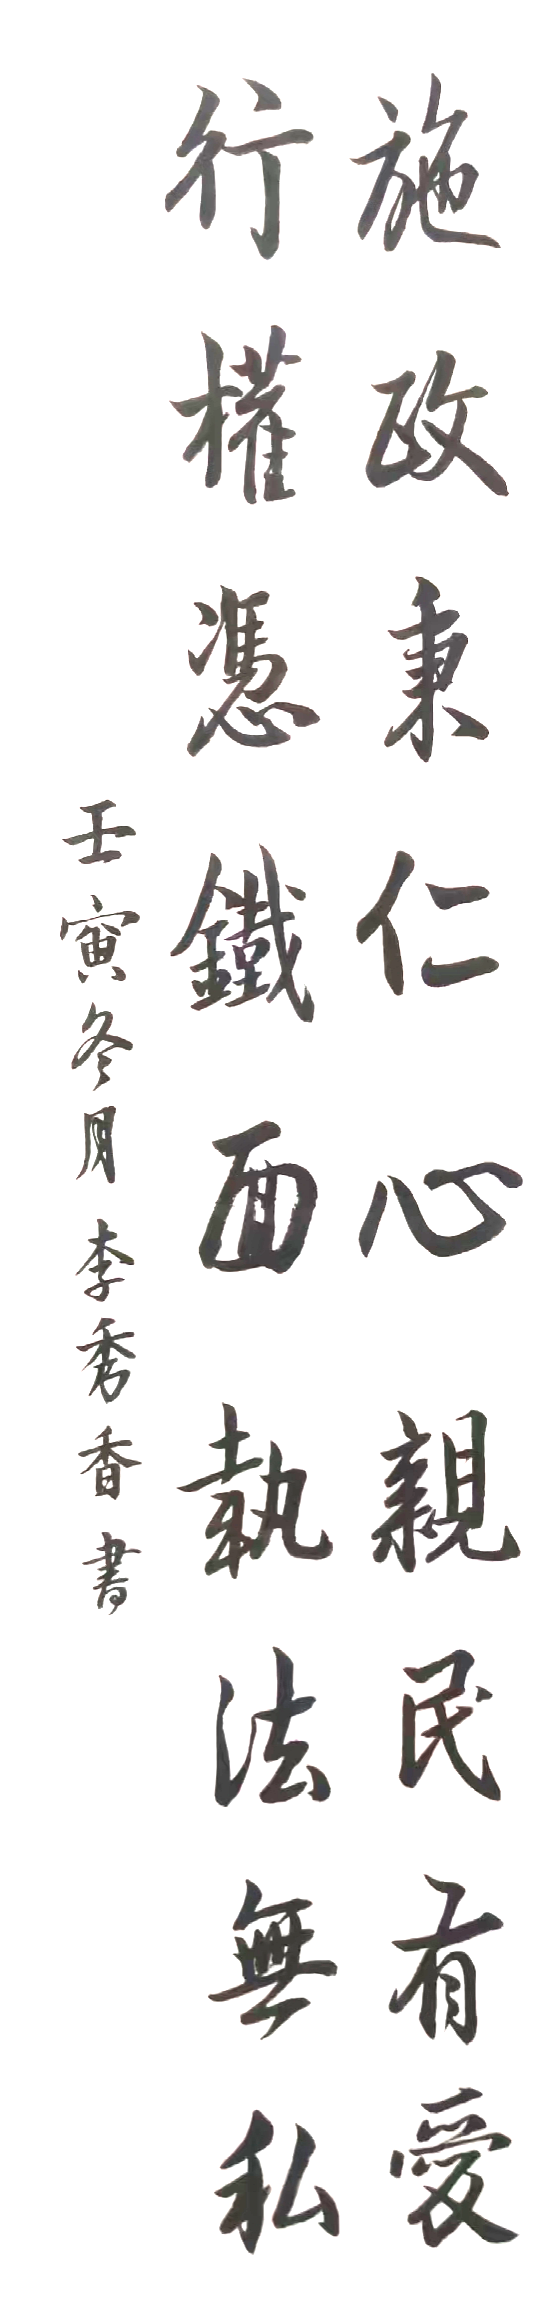 施政秉仁心親民有愛
行權憑鐵面執法無私
壬寅冬月李秀香書